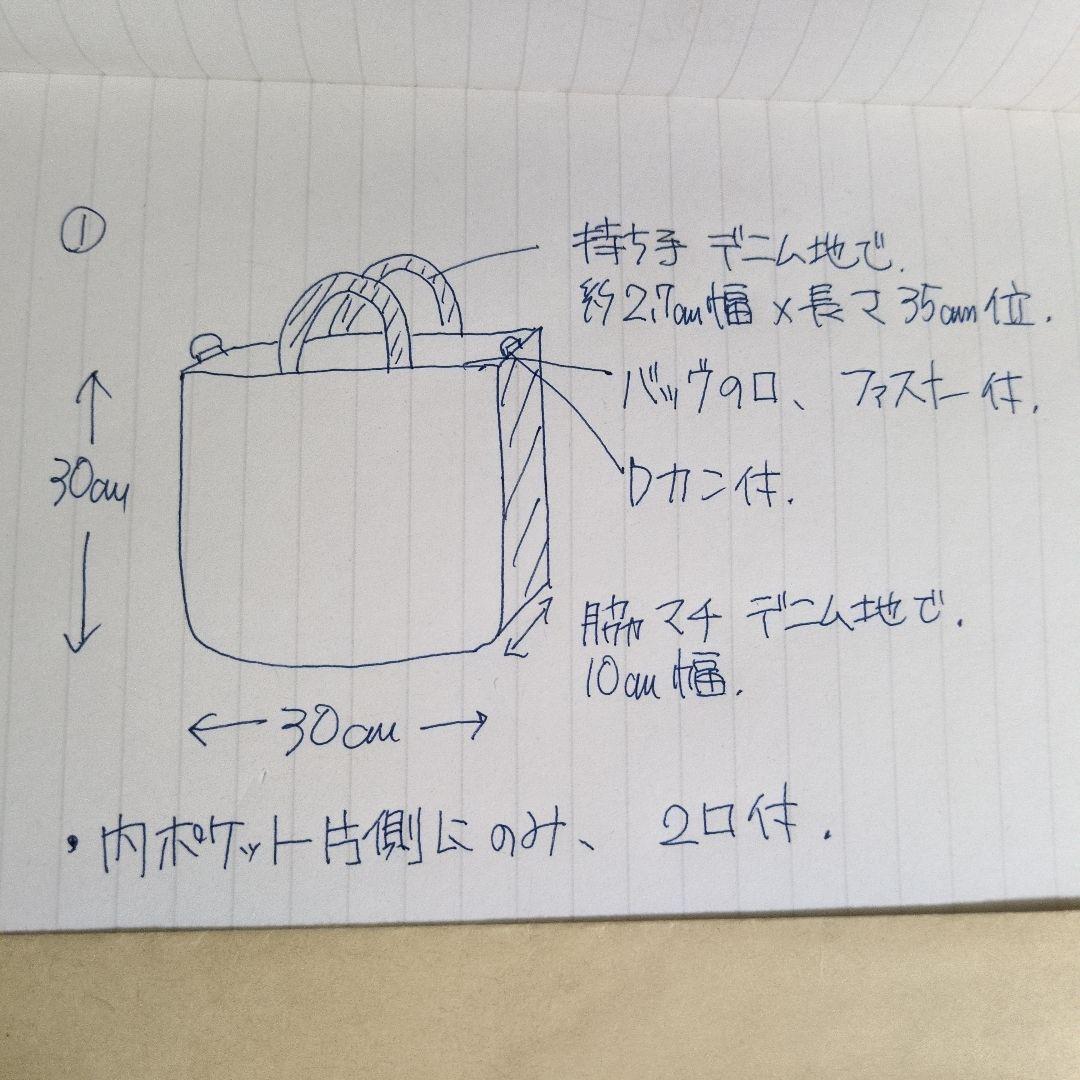 ①
持ち手 デニム地で.
約2.7cm幅×長さ35cm位.
バッグの口、ファスナー付.
Dカン付.
30cm
脇マチ デニム地で.
10cm幅.
30cm
・内ポケット片側にのみ、2口付.